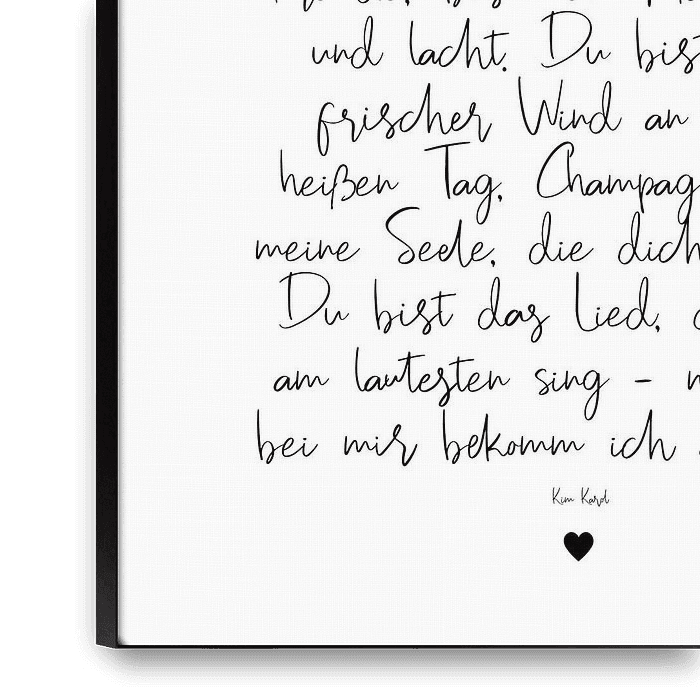 und lacht. Du bist
frischer Wind an
heißen Tag, Champag
meine Seele, die dich
Du bist das Lied,
am lautesten sing -
bei mir bekomm ich
Kim Kard